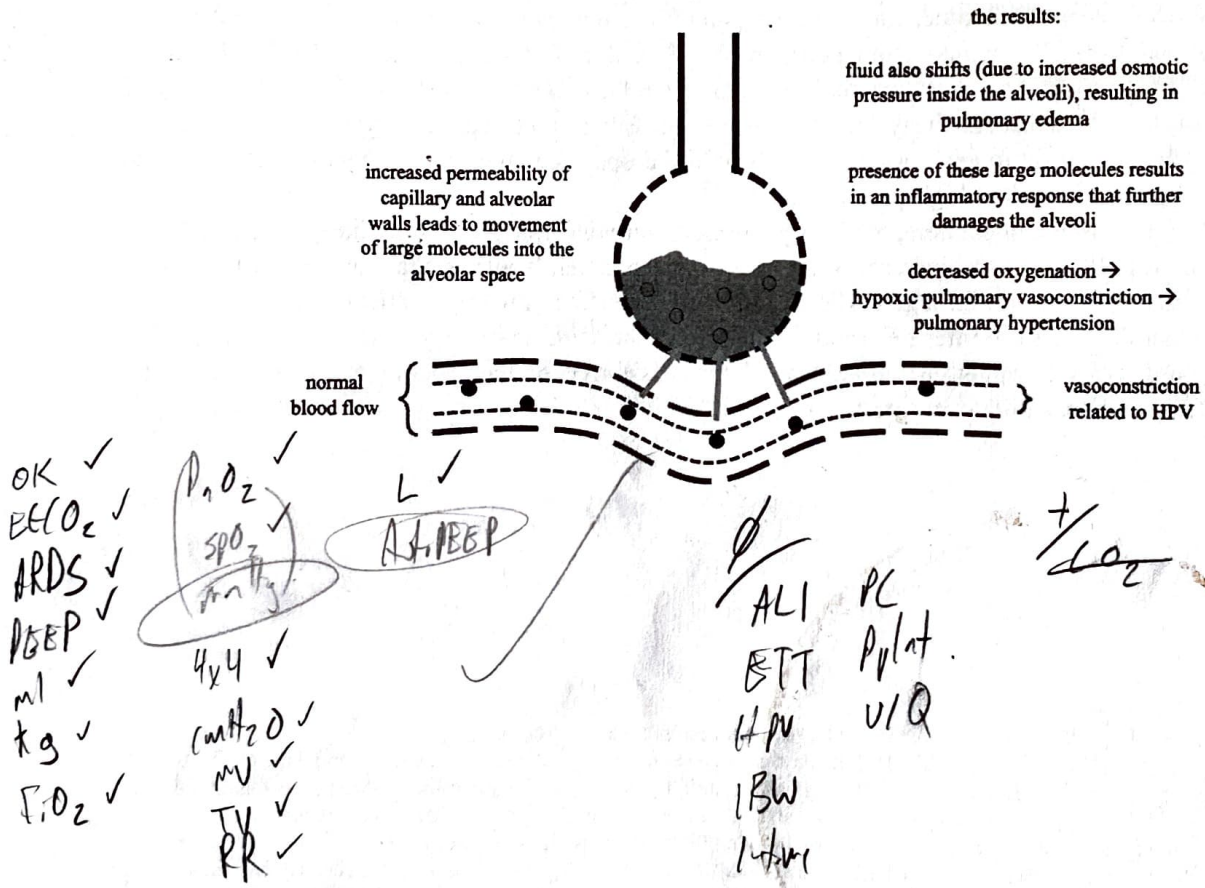 the results:
fluid also shifts (due to increased osmotic
pressure inside the alveoli), resulting in
pulmonary edema
presence of these large molecules results
in an inflammatory response that further
damages the alveoli
decreased oxygenation →
hypoxic pulmonary vasoconstriction →
pulmonary hypertension
increased permeability of
capillary and alveolar
walls leads to movement
of large molecules into the
alveolar space
normal
blood flow
vasoconstriction
related to HPV
OK ✓
ARDS ✓
PEEP ✓
ml ✓
kg ✓
FiO₂ ✓
✓
SpO₂ ✓
mmHg
4x4 ✓
cmH₂O ✓
MV ✓
TV ✓
RR ✓
L ✓
ALI
ETT
HPV
IBW
PC
Pplat
V/Q